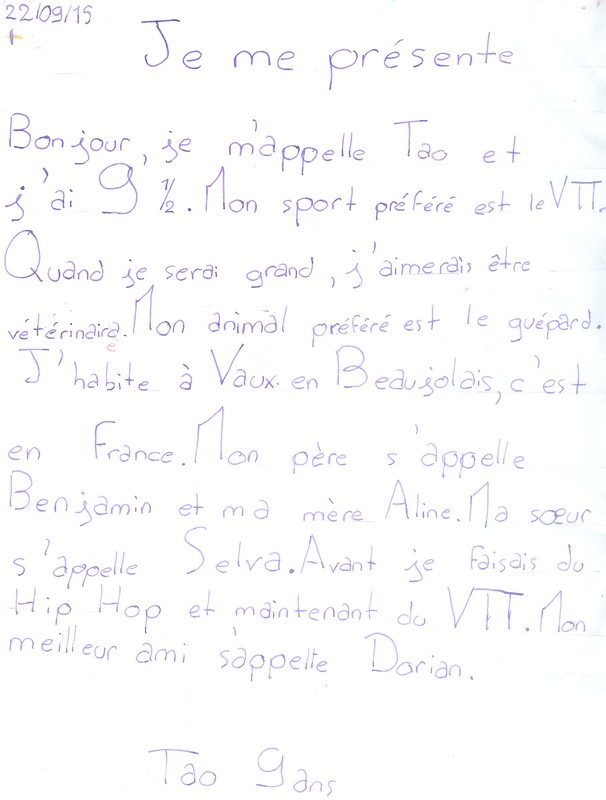 22/09/15
Je me présente
Bonjour, je m'appelle Tao et
j'ai 9 ½. Mon sport préféré est le VTT.
Quand je serai grand, j'aimerais être
vétérinaire. Mon animal préféré est le guépard.
J'habite à Vaux en Beaujolais, c'est
en France. Mon père s'appelle
Benjamin et ma mère Aline. Ma sœur
s'appelle Selva. Avant je faisais du
Hip Hop et maintenant du VTT. Mon
meilleur ami s'appelle Dorian.
Tao 9 ans